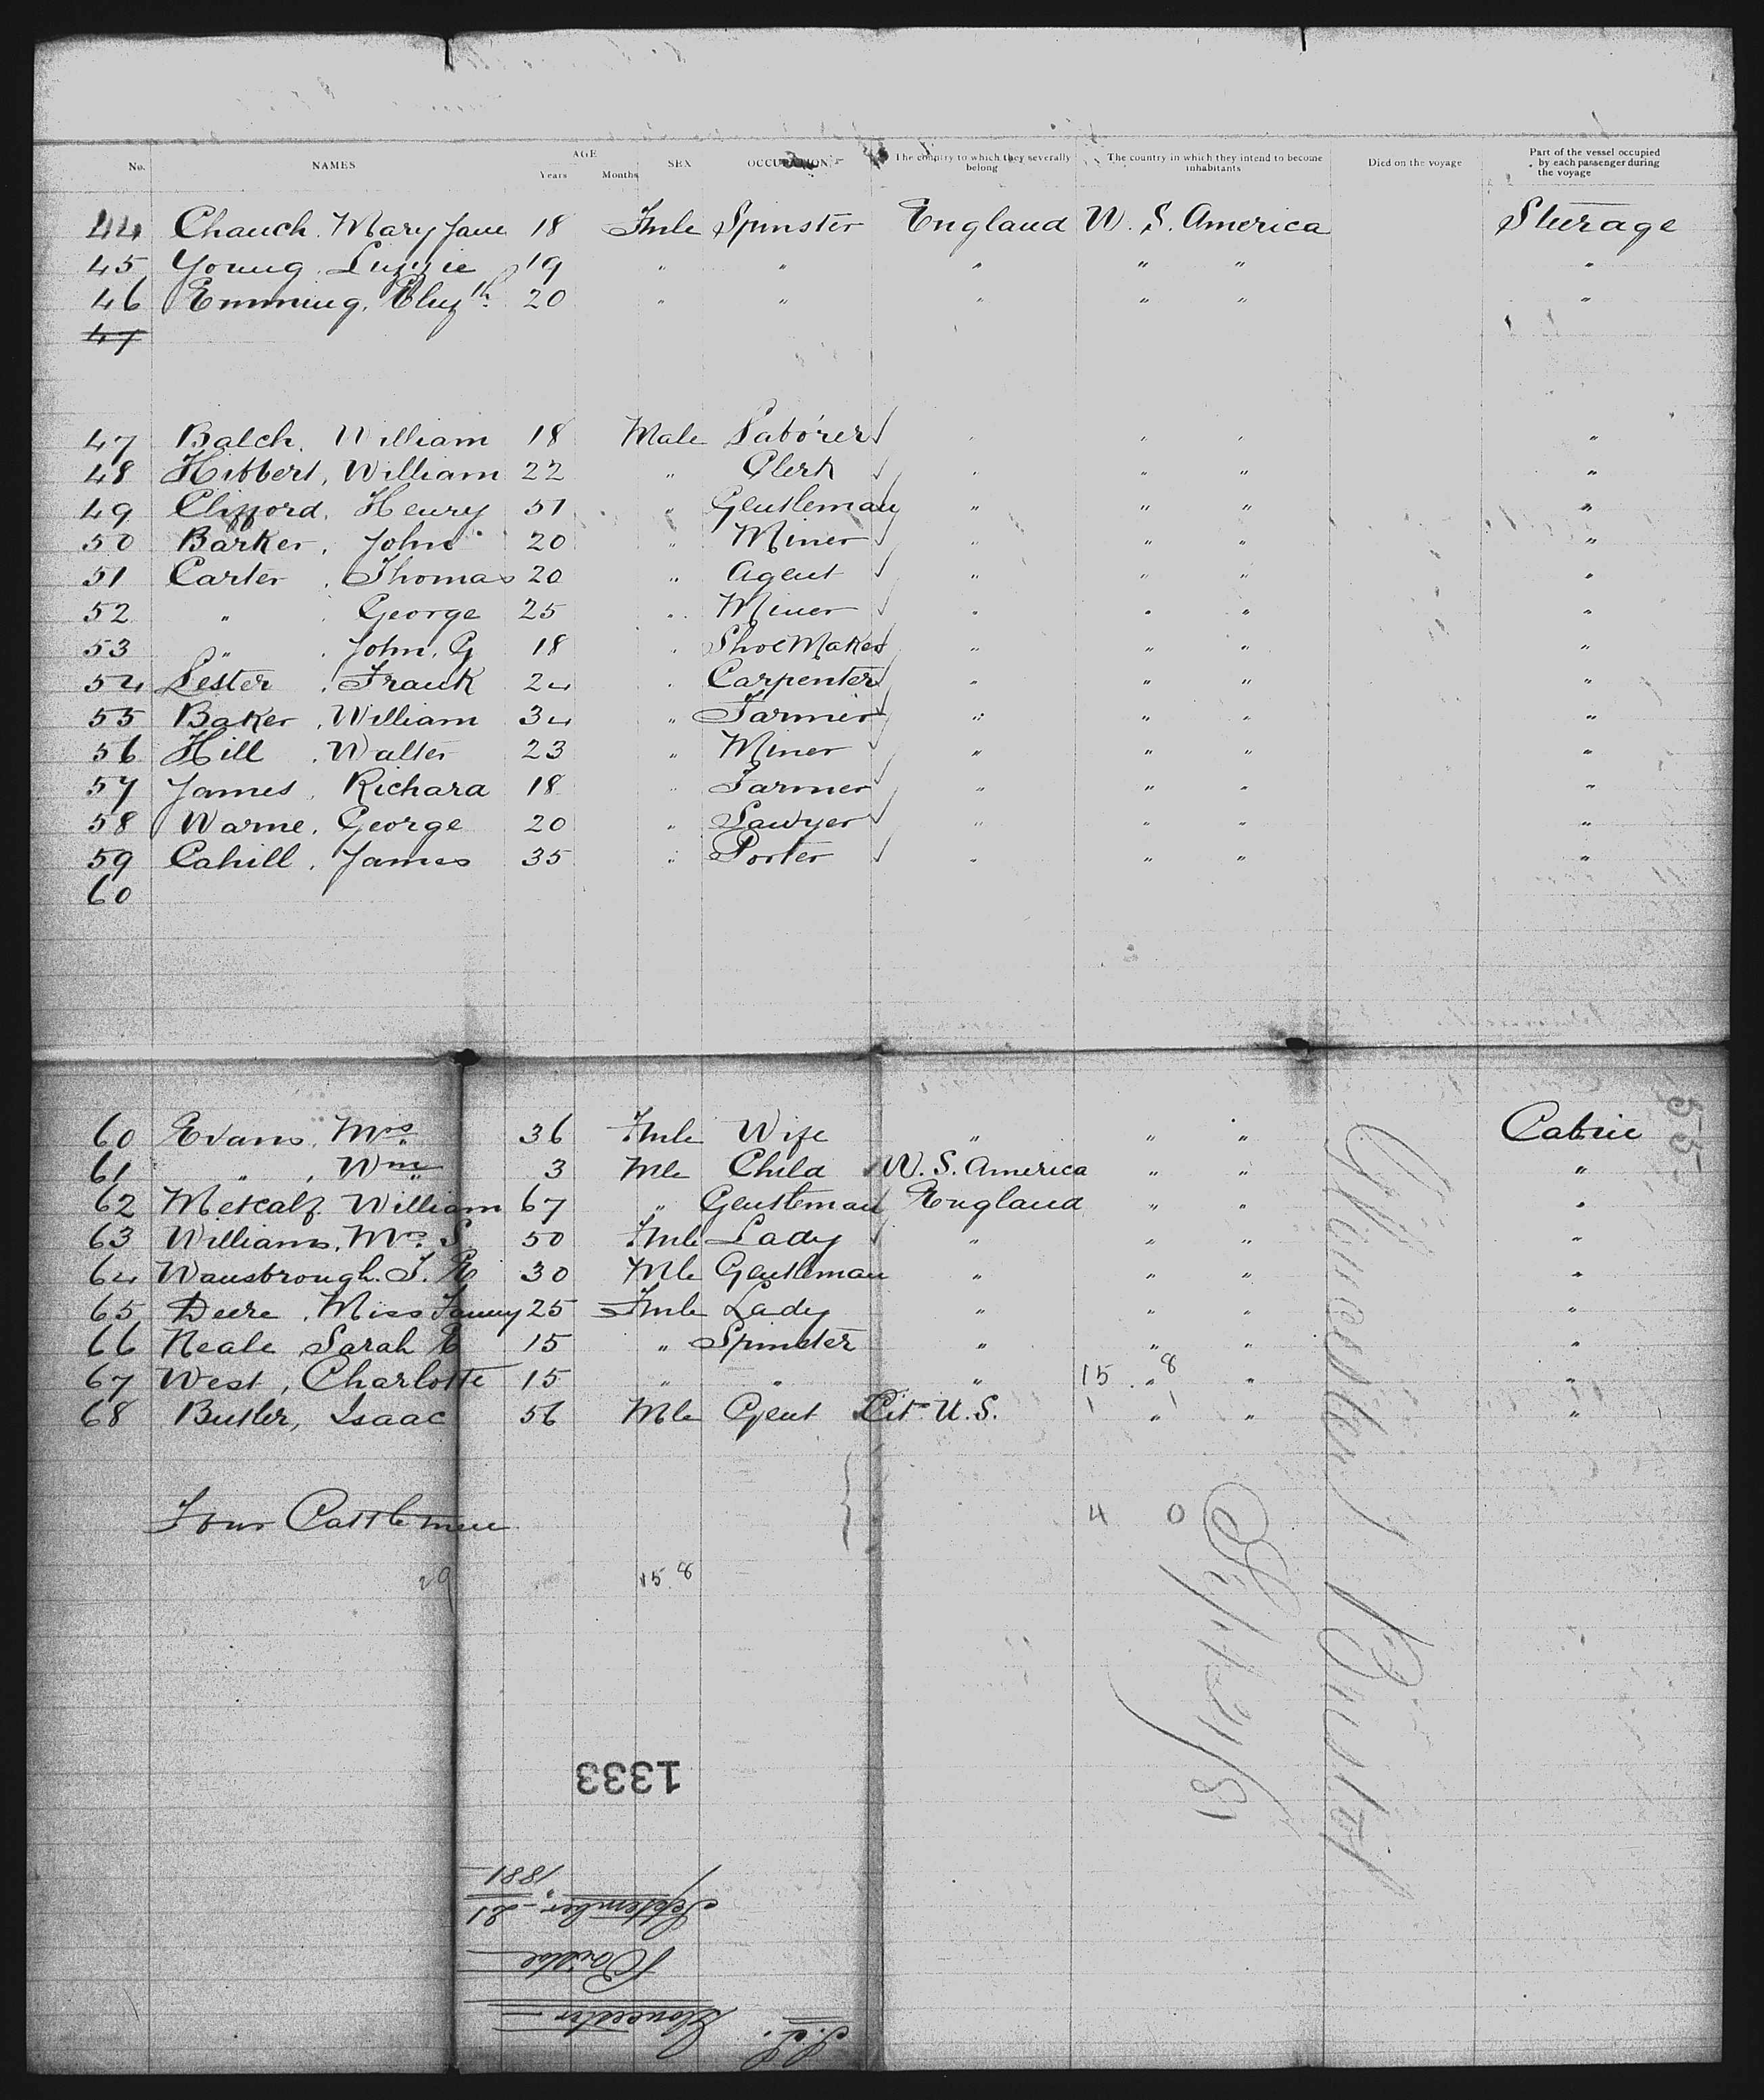 No. NAMES AGE Years Months SEX OCCUPATION The country to which they severally belong The country in which they intend to become inhabitants Died on the voyage Part of the vessel occupied by each passenger during the voyage
44 Chauch. Mary Jane 18 Fmle Spinster England U. S. America Steerage
45 Young. Luzzie 19 " " " " " "
46 Emming, Elizth 20 " " " " " "
47
47 Balch, William 18 Male Laborer " " " "
48 Hibbert, William 22 " Clerk " " " "
49 Clifford, Henry 51 " Gentleman " " " "
50 Barker, John 20 " Miner " " " "
51 Carter, Thomas 20 " Agent " " " "
52 " George 25 " Miner " " " "
53 " John. G 18 " Shoe Maker " " " "
54 Lester, Frank 24 " Carpenter " " " "
55 Baker, William 34 " Farmer " " " "
56 Hill, Walter 23 " Miner " " " "
57 James, Richard 18 " Farmer " " " "
58 Warne, George 20 " Sawyer " " " "
59 Cahill, James 35 " Porter " " " "
60
60 Evans, Mrs 36 Fmle Wife " " " Cabin
61 " , Wm 3 Mle Child U. S. America " " "
62 Metcalf William 67 " Gentleman England " " "
63 Williams, Mrs. S 50 Fmle Lady " " " "
64 Wansbrough. T. R 30 Mle Gentleman " " " "
65 Deere, Miss Fanny 25 Fmle Lady " " " "
66 Neale Sarah E 15 " Spinster " " " "
67 West, Charlotte 15 " " " 15 " 8 " "
68 Butler, Isaac 56 Mle Gent Cit. U.S. 1 " 1 " "
Four Cattlemen 4 0
29 15 8
55
Gloucester / Bristol
Sept 21/81
1333
S.S.
Gloucester
Bristol
September 21
1881